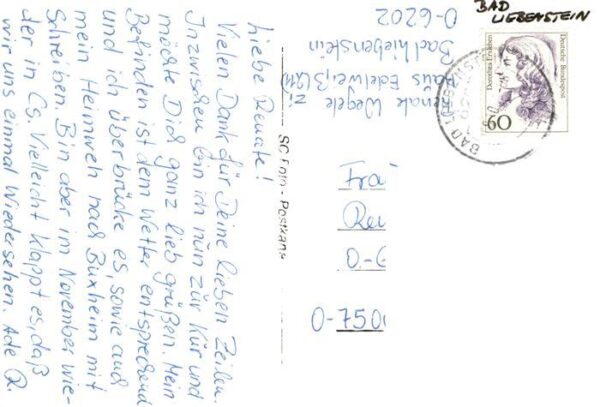 BAD
LIEBENSTEIN
Deutsche Bundespost
Dorothea Erxleben
60
BAD
Liebe Renate!
Vielen Dank für Deine lieben Zeilen.
Inzwischen bin ich nun zur Kur und
möchte Dich ganz lieb grüßen. Mein
Befinden ist dem Wetter entsprechend
und ich überbrücke es, sowie auch
mein Heimweh nach Buxheim mit
Schreiben. Bin aber im November wie-
der in Cs. Vielleicht klappt es, daß
wir uns einmal Wiedersehen. Ade R.
Wegele
Haus Edelweiß
Bad Liebenstein
O-6202
SC Foto-Postkarte
Fra
Ren
O-7500